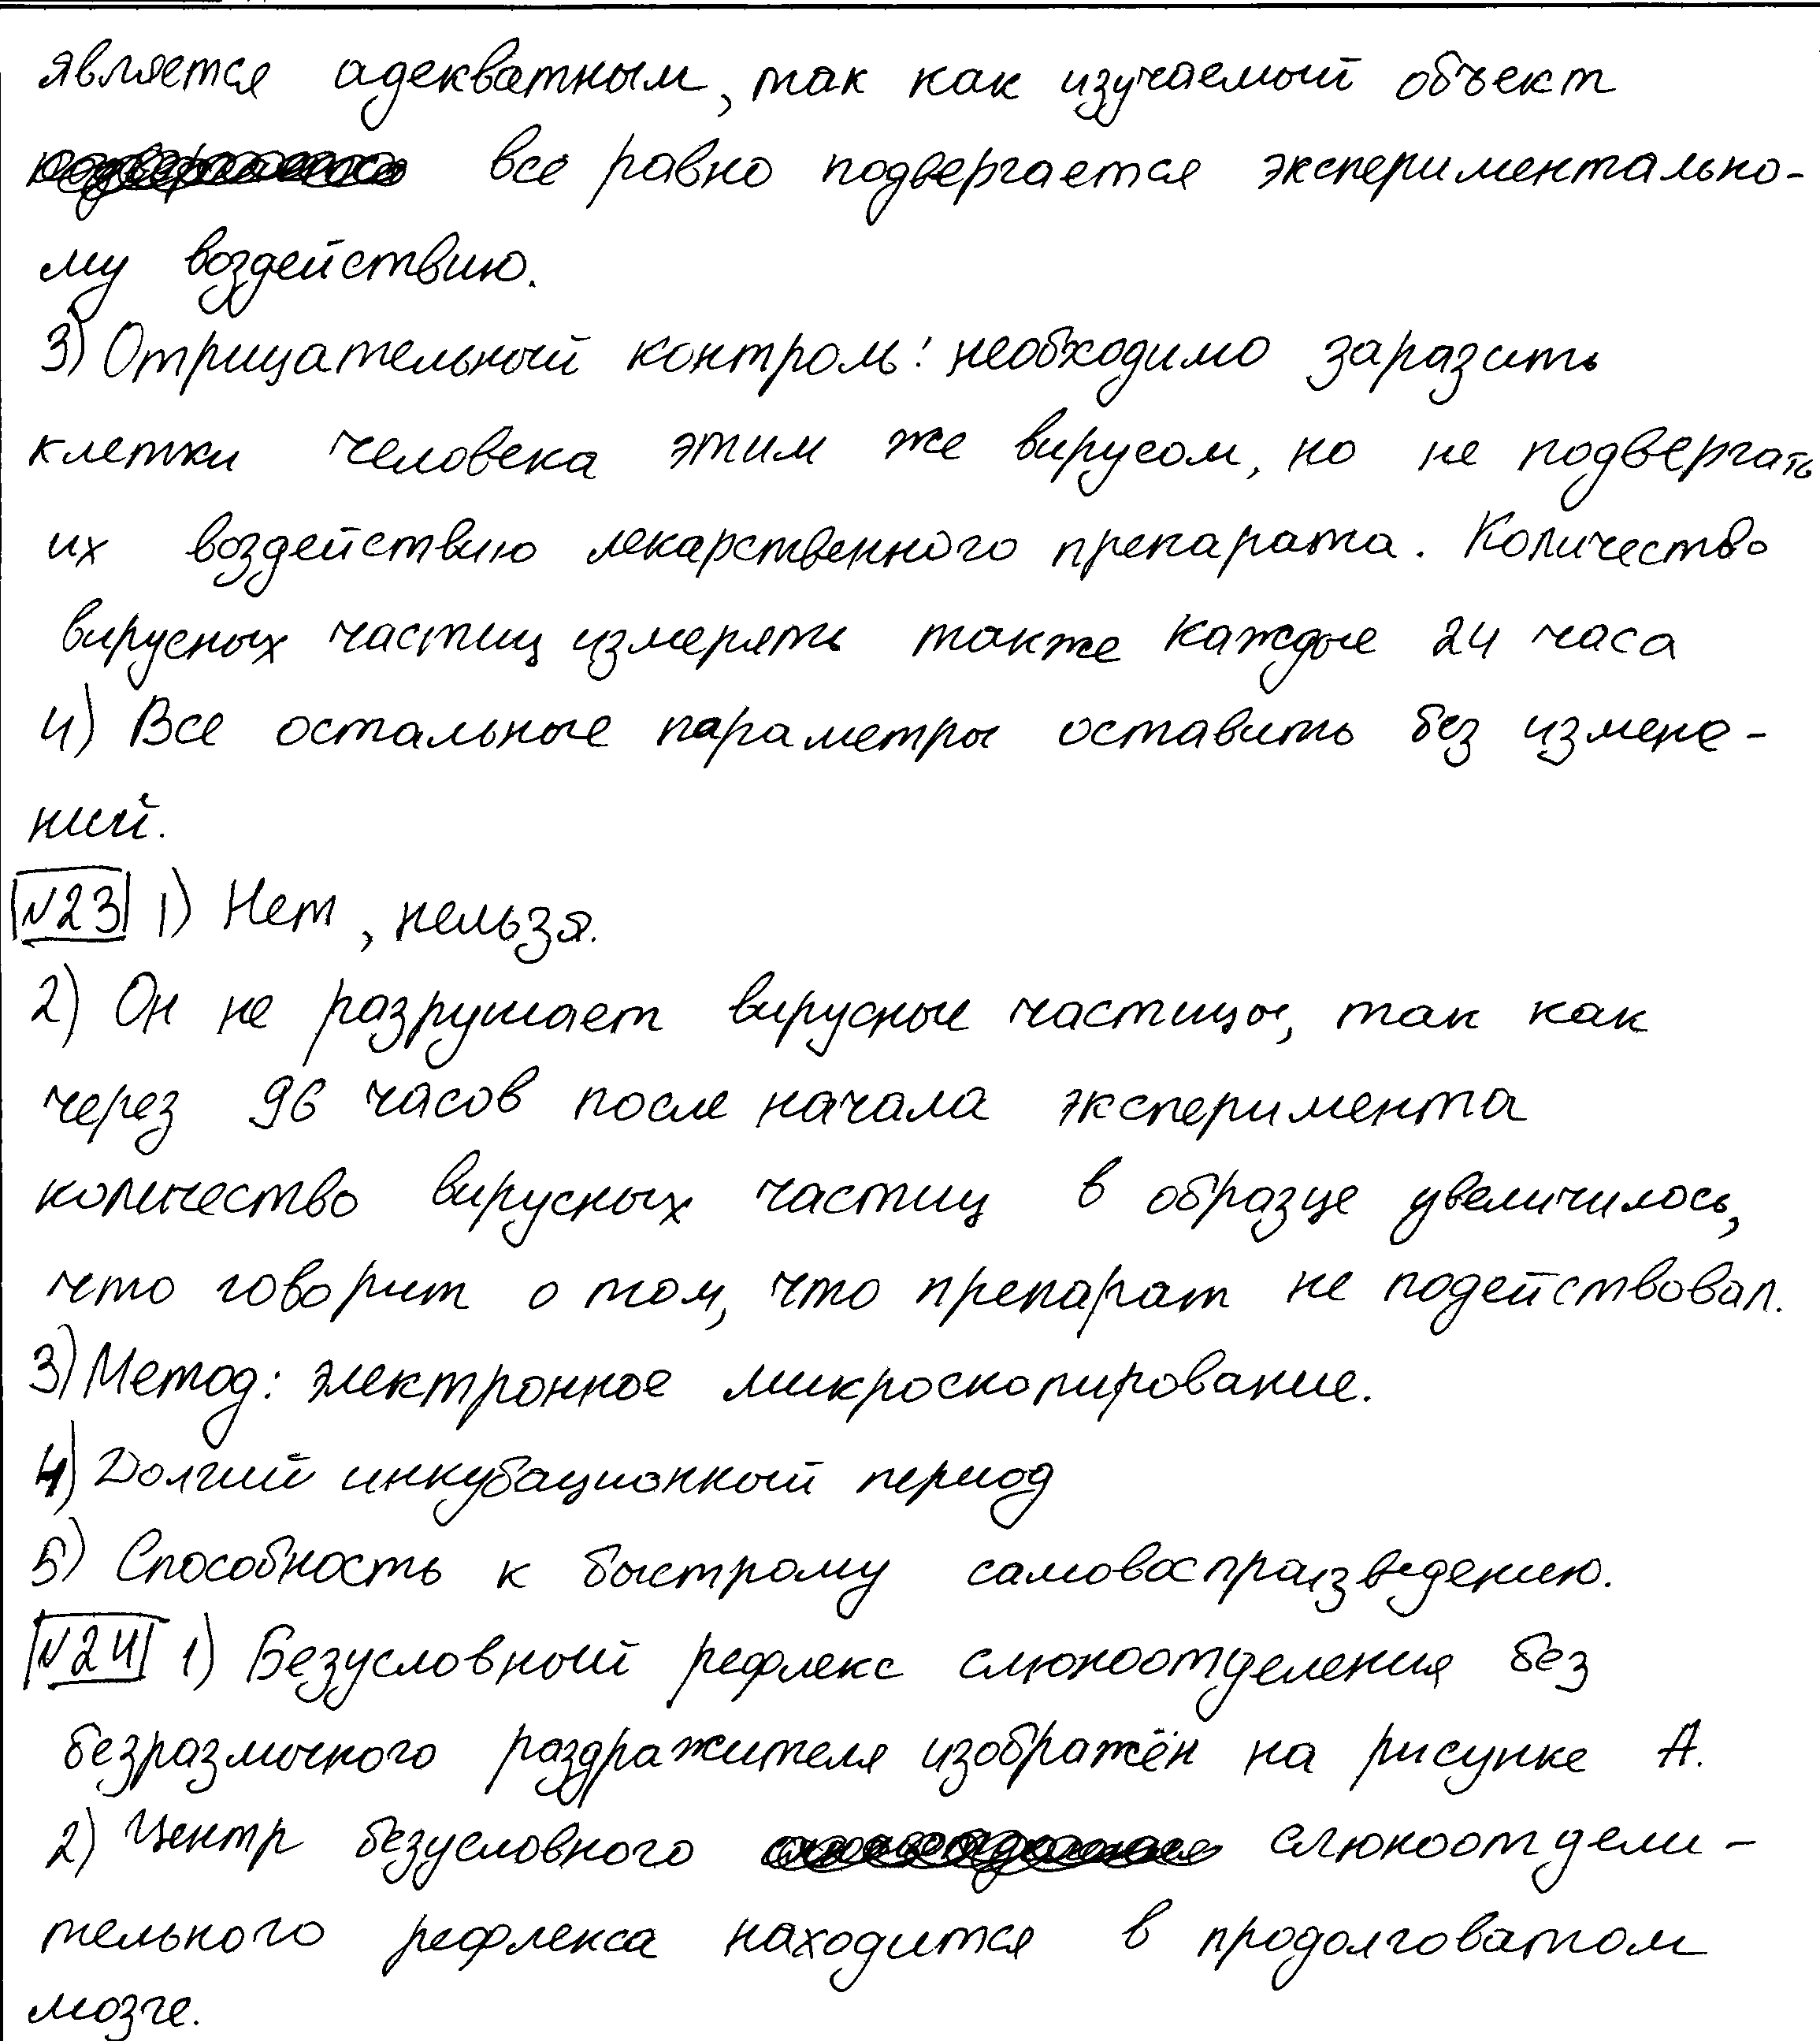 является адекватным, так как изучаемый объект
все равно подвергается экспериментально-
му воздействию.
3) Отрицательный контроль: необходимо заразить
клетки человека этим же вирусом, но не подвергать
их воздействию лекарственного препарата. Количество
вирусных частиц измерять также каждые 24 часа
4) Все остальные параметры оставить без измене-
ний.
№23 1) Нет, нельзя.
2) Он не разрушает вирусные частицы, так как
через 96 часов после начала эксперимента
количество вирусных частиц в образце увеличилось,
что говорит о том, что препарат не подействовал.
3) Метод: электронное микроскопирование.
4) Долгий инкубационный период
5) Способность к быстрому самовоспраизведению.
№24 1) Безусловный рефлекс слюноотделения без
безразличного раздражителя изображён на рисунке А.
2) Центр безусловного слюноотдели-
тельного рефлекса находится в продолговатом
мозге.